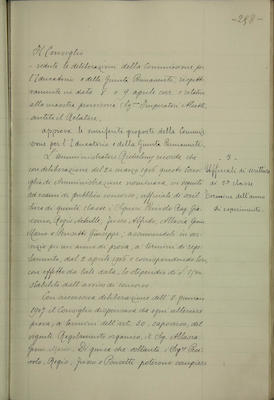 -258-
Il Consiglio
- vedute le deliberazioni della Commissione per
l'Educatorio e della Giunta Permanente, rispetti-
vamente in data 8 e 9 aprile corr. e relative
alla maestra provvisoria Sig.na
sentito il Relatore,
approva le surriferite proposte della Commis-
sione per l'Educatorio e della Giunta Permanente.
L'amministratore ricorda che
con deliberazione del 24 marzo 1906 questo Consi-
glio di Amministrazione nominava, in seguito
ad esami di pubblico concorso, ufficiali di scrit-
tura di quinta classe i Signori
Regis Achille, Alfredo,
Mario e Ponsetti Giuseppe; assumendoli in ser-
vizio per un anno di prova, a termini di rego-
lamento, dal 2 aprile 1906 e corrispondendo loro
con effetto da tale data, lo stipendio di £.
stabilito dall'avviso di concorso.
Con successiva deliberazione dell'8 gennaio
1907 il Consiglio dispensava da ogni ulteriore
prova, a termini dell'art. 30, capoverso, del
vigente Regolamento organico, il Sig.
Mario. Di guisa che soltanto i Sig.ri
Regis, e Ponsetti poterono compiere
9 -
Ufficiali di scrittura
di 5a classe
Termine dell'anno
di esperimento.